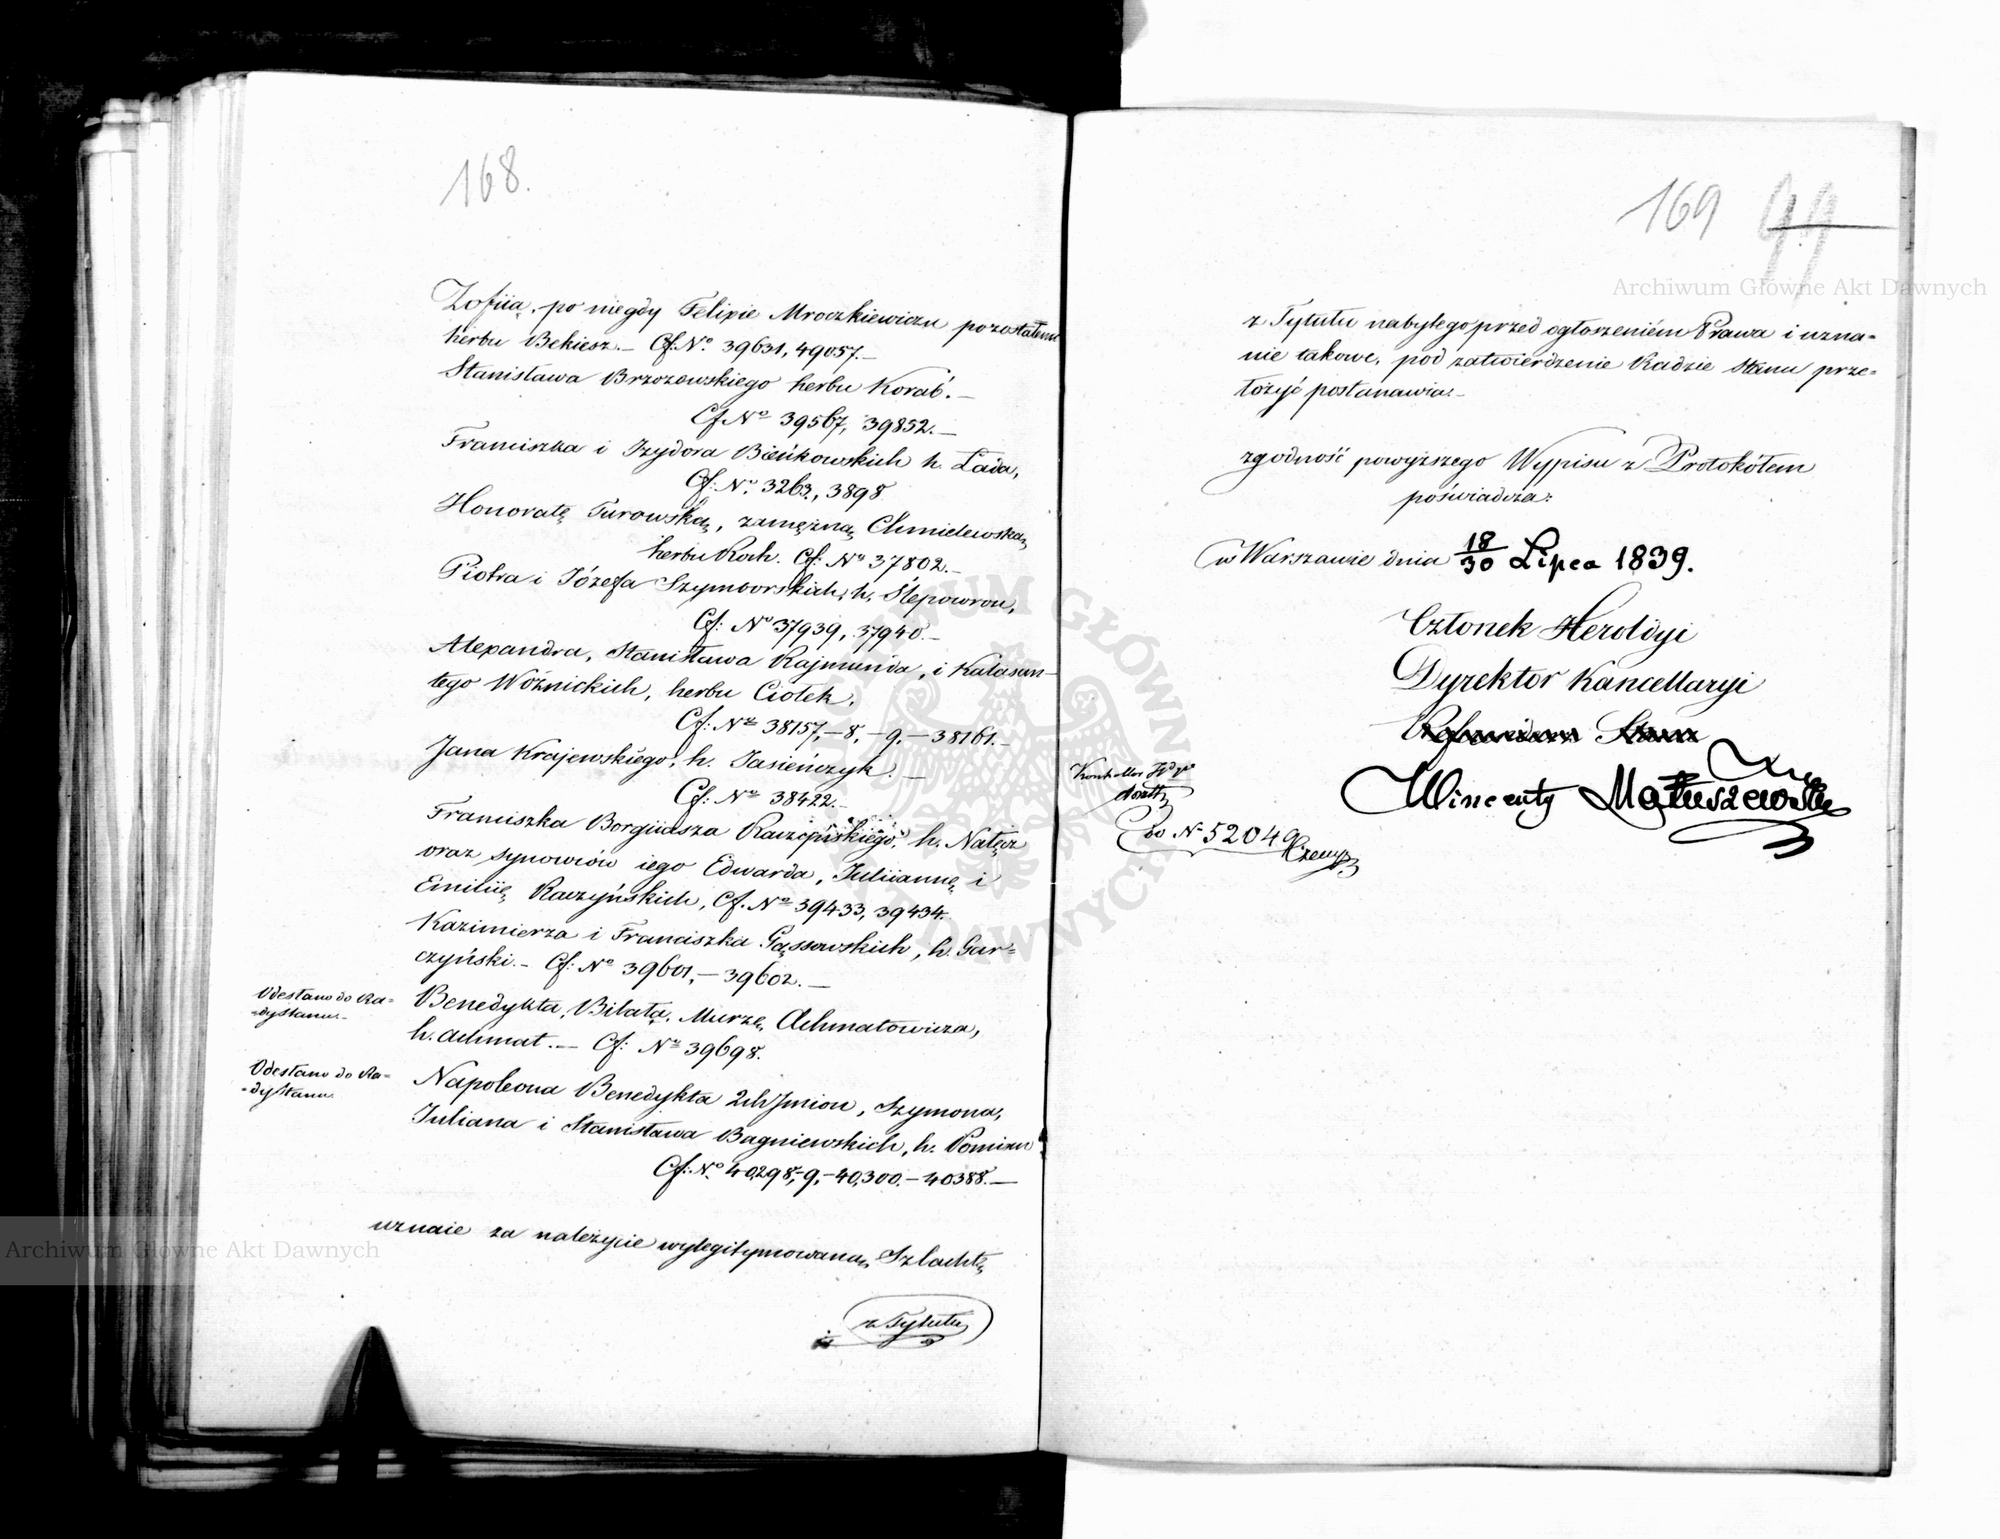 168.
Zofiią, po niegdy Felixie Mroczkiewiczu pozostałemi
herbu Bekiesz. – Cf: No. 39631, 49057. –
Stanisława Brzozowskiego herbu Korab'. –
Cf. No 39567, 39852. –
Franciszka i Izydora Bieńkowskich h. Łada,
Cf: No. 3263, 3898
Honoratę Turowską, zamężną Chmielewską,
herbu Roch. Cf: No 37802. –
Piotra i Józefa Szymborskich, h. Ślepowron,
Cf: No 37939, 37940. –
Alexandra, Stanisława Rajmunda, i Kalasan-
tego Woźnickich, herbu Ciołek.
Cf: No 38157, – 8, – 9, – 38161. –
Jana Krajewskiego, h. Jasieńczyk. –
Cf: No 38422. –
Franciszka Borgiasza Raczyńskiego, h. Nałęcz
oraz synowców iego Edwarda, Juliiannę i
Emiliię Raczyńskich, Cf. No 39433, 39434.
Kazimierza i Franciszka Gąssowskich, h. Gar=
czyński. – Cf: No 39601, – 39602. –
Odesłano do Ra=
=dy Stanu. –
Benedykta, Bilała, Murzę, Achmatowicza,
h. Achmat. – Cf: No 39698.
Odesłano do Ra=
=dy Stanu.
Napoleona Benedykta 2ch Imion, Szymona,
Juliana i Stanisława Bagniewskich, h. Pomian
Cf: No. 40298, – 9, – 40,300. – 40388. –
uznaie za należycie wylegitymowaną Szlachtę
z Tytułu
169 99
z Tytułu nabytego przed ogłoszeniem Prawa i uzna=
nie takowe, pod zatwierdzenie Radzie Stanu prze=
łożyć postanawia. –
zgodność powyższego Wypisu z Protokółem
poświadcza:
w Warszawie dnia 18/30 Lipca 1839.
Członek Heroldyi
Dyrektor Kancellaryi
Stanu
Wincenty Matuszewski
do No 52049
Archiwum Główne Akt Dawnych
Archiwum Główne Akt Dawnych
ARCHIWUM GŁÓWNE AKT DAWNYCH